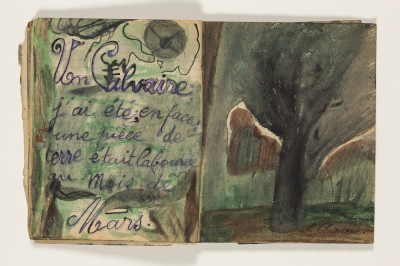 Un Calvaire.
j'ai été en face
une pièce de
terre était labourée
au mois de
Mars.